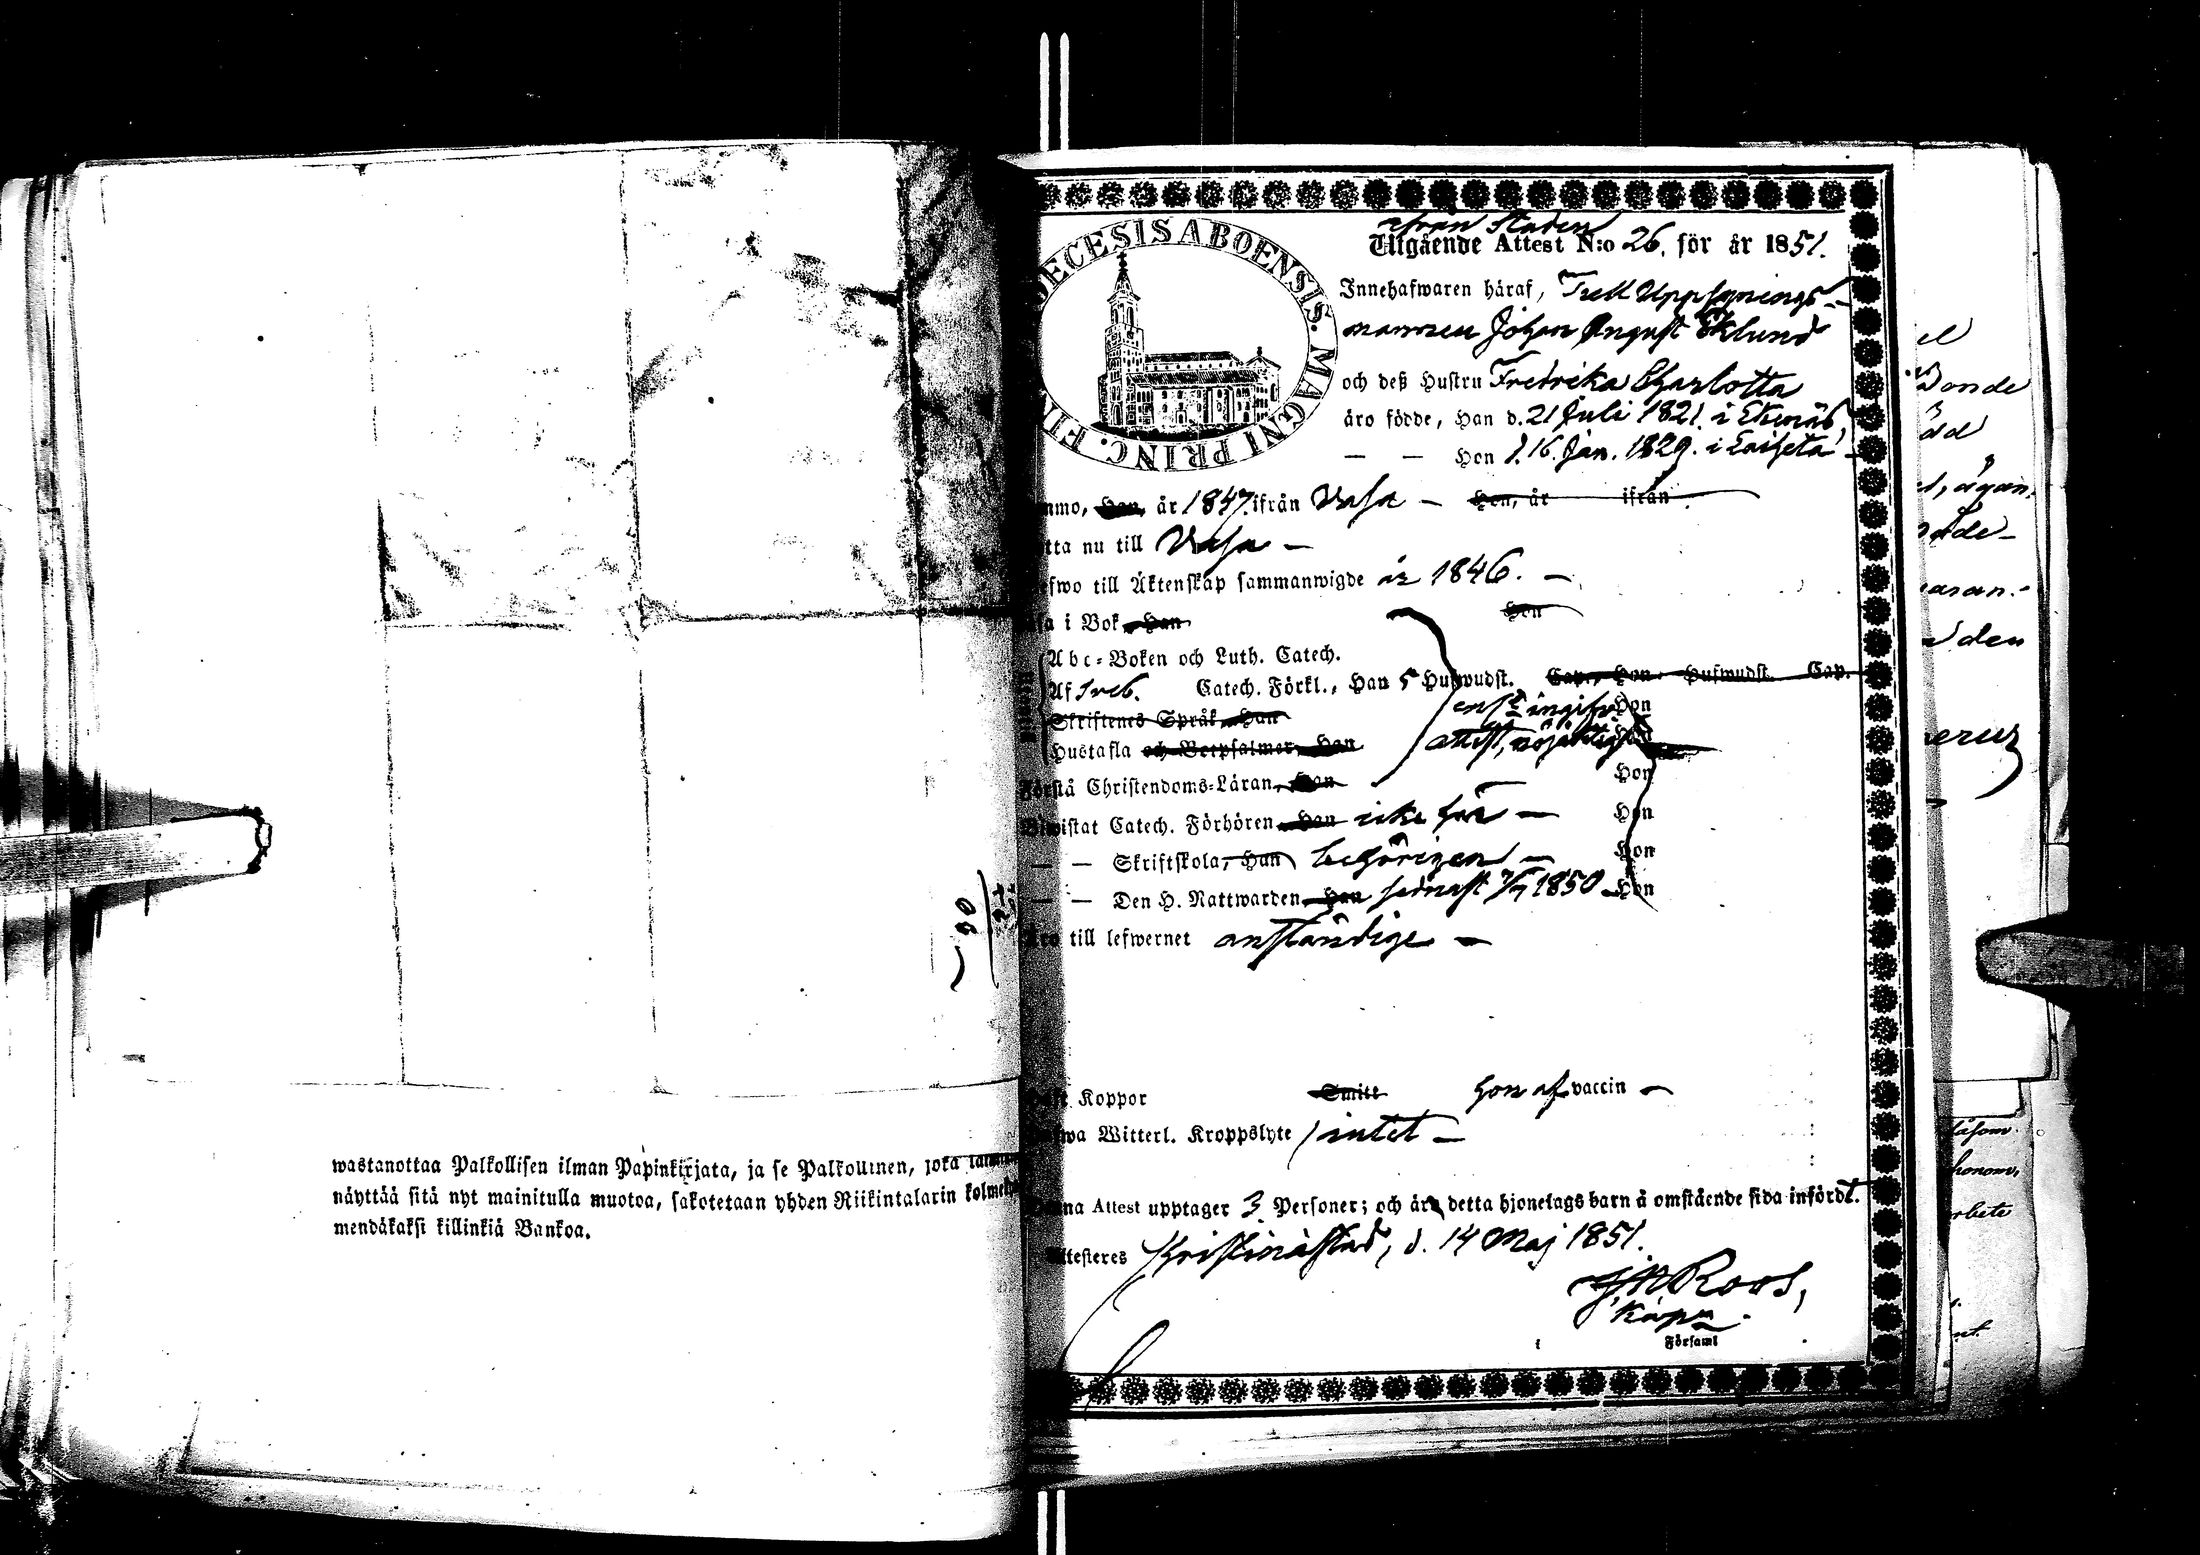 wastanottaa Palkollisen ilman Papinkirjata, ja se Palkollinen, joka
näyttää sitä nyt mainitulla muotoa, sakotetaan yhden Riikintalarin
mendäkaksi killinkiä Bankoa.
DECESIS ABOENSIS. MAGNI PRINC. FI
ifrån Staden
Utgående Attest N:o 26. för år 1851.
Innehafwaren häraf, Tull Uppsynings-
mannen Johan August Eklund
och deß Hustru Fredrika Charlotta
äro födde, Han d. 21 Juli 1821. i Ekenäs,
— — Hon d. 16. Jan. 1829. i Laihela
mmo, Han, år 1847. ifrån Vasa — Hon, år ifrån
tta nu till Vasa —
efwo till Äktenskap sammanwigde år 1846. —
sa i Bok, Han Hon
Abc-Boken och Luth. Catech.
Af Sveb. Catech. Förkl., Han 5 Hufwudst. Cap., Hon Hufwudst. Cap.
Skriftenes Språk, Han Hon
Hustafla och Botpsalmer, Han attest, nöjaktigt
Förstå Christendoms-Läran, Han Hon
Biwistat Catech. Förhören, Han icke här — Hon
— — Skriftskola, Han behörigen — Hon
— — Den H. Nattwarden, Han sednast 7/7 1850 — Hon
Äro till lefwernet anständige —
Haft Koppor Smitt hon af vaccin —
Hafwa Witterl. Kroppslyte intet —
Denna Attest upptager 3 Personer; och äro detta hjonelags barn å omstående sida infördt.
Attesteres Kristinestad, d. 14 Maj 1851.
J N Roos,
Kapn.
Församl